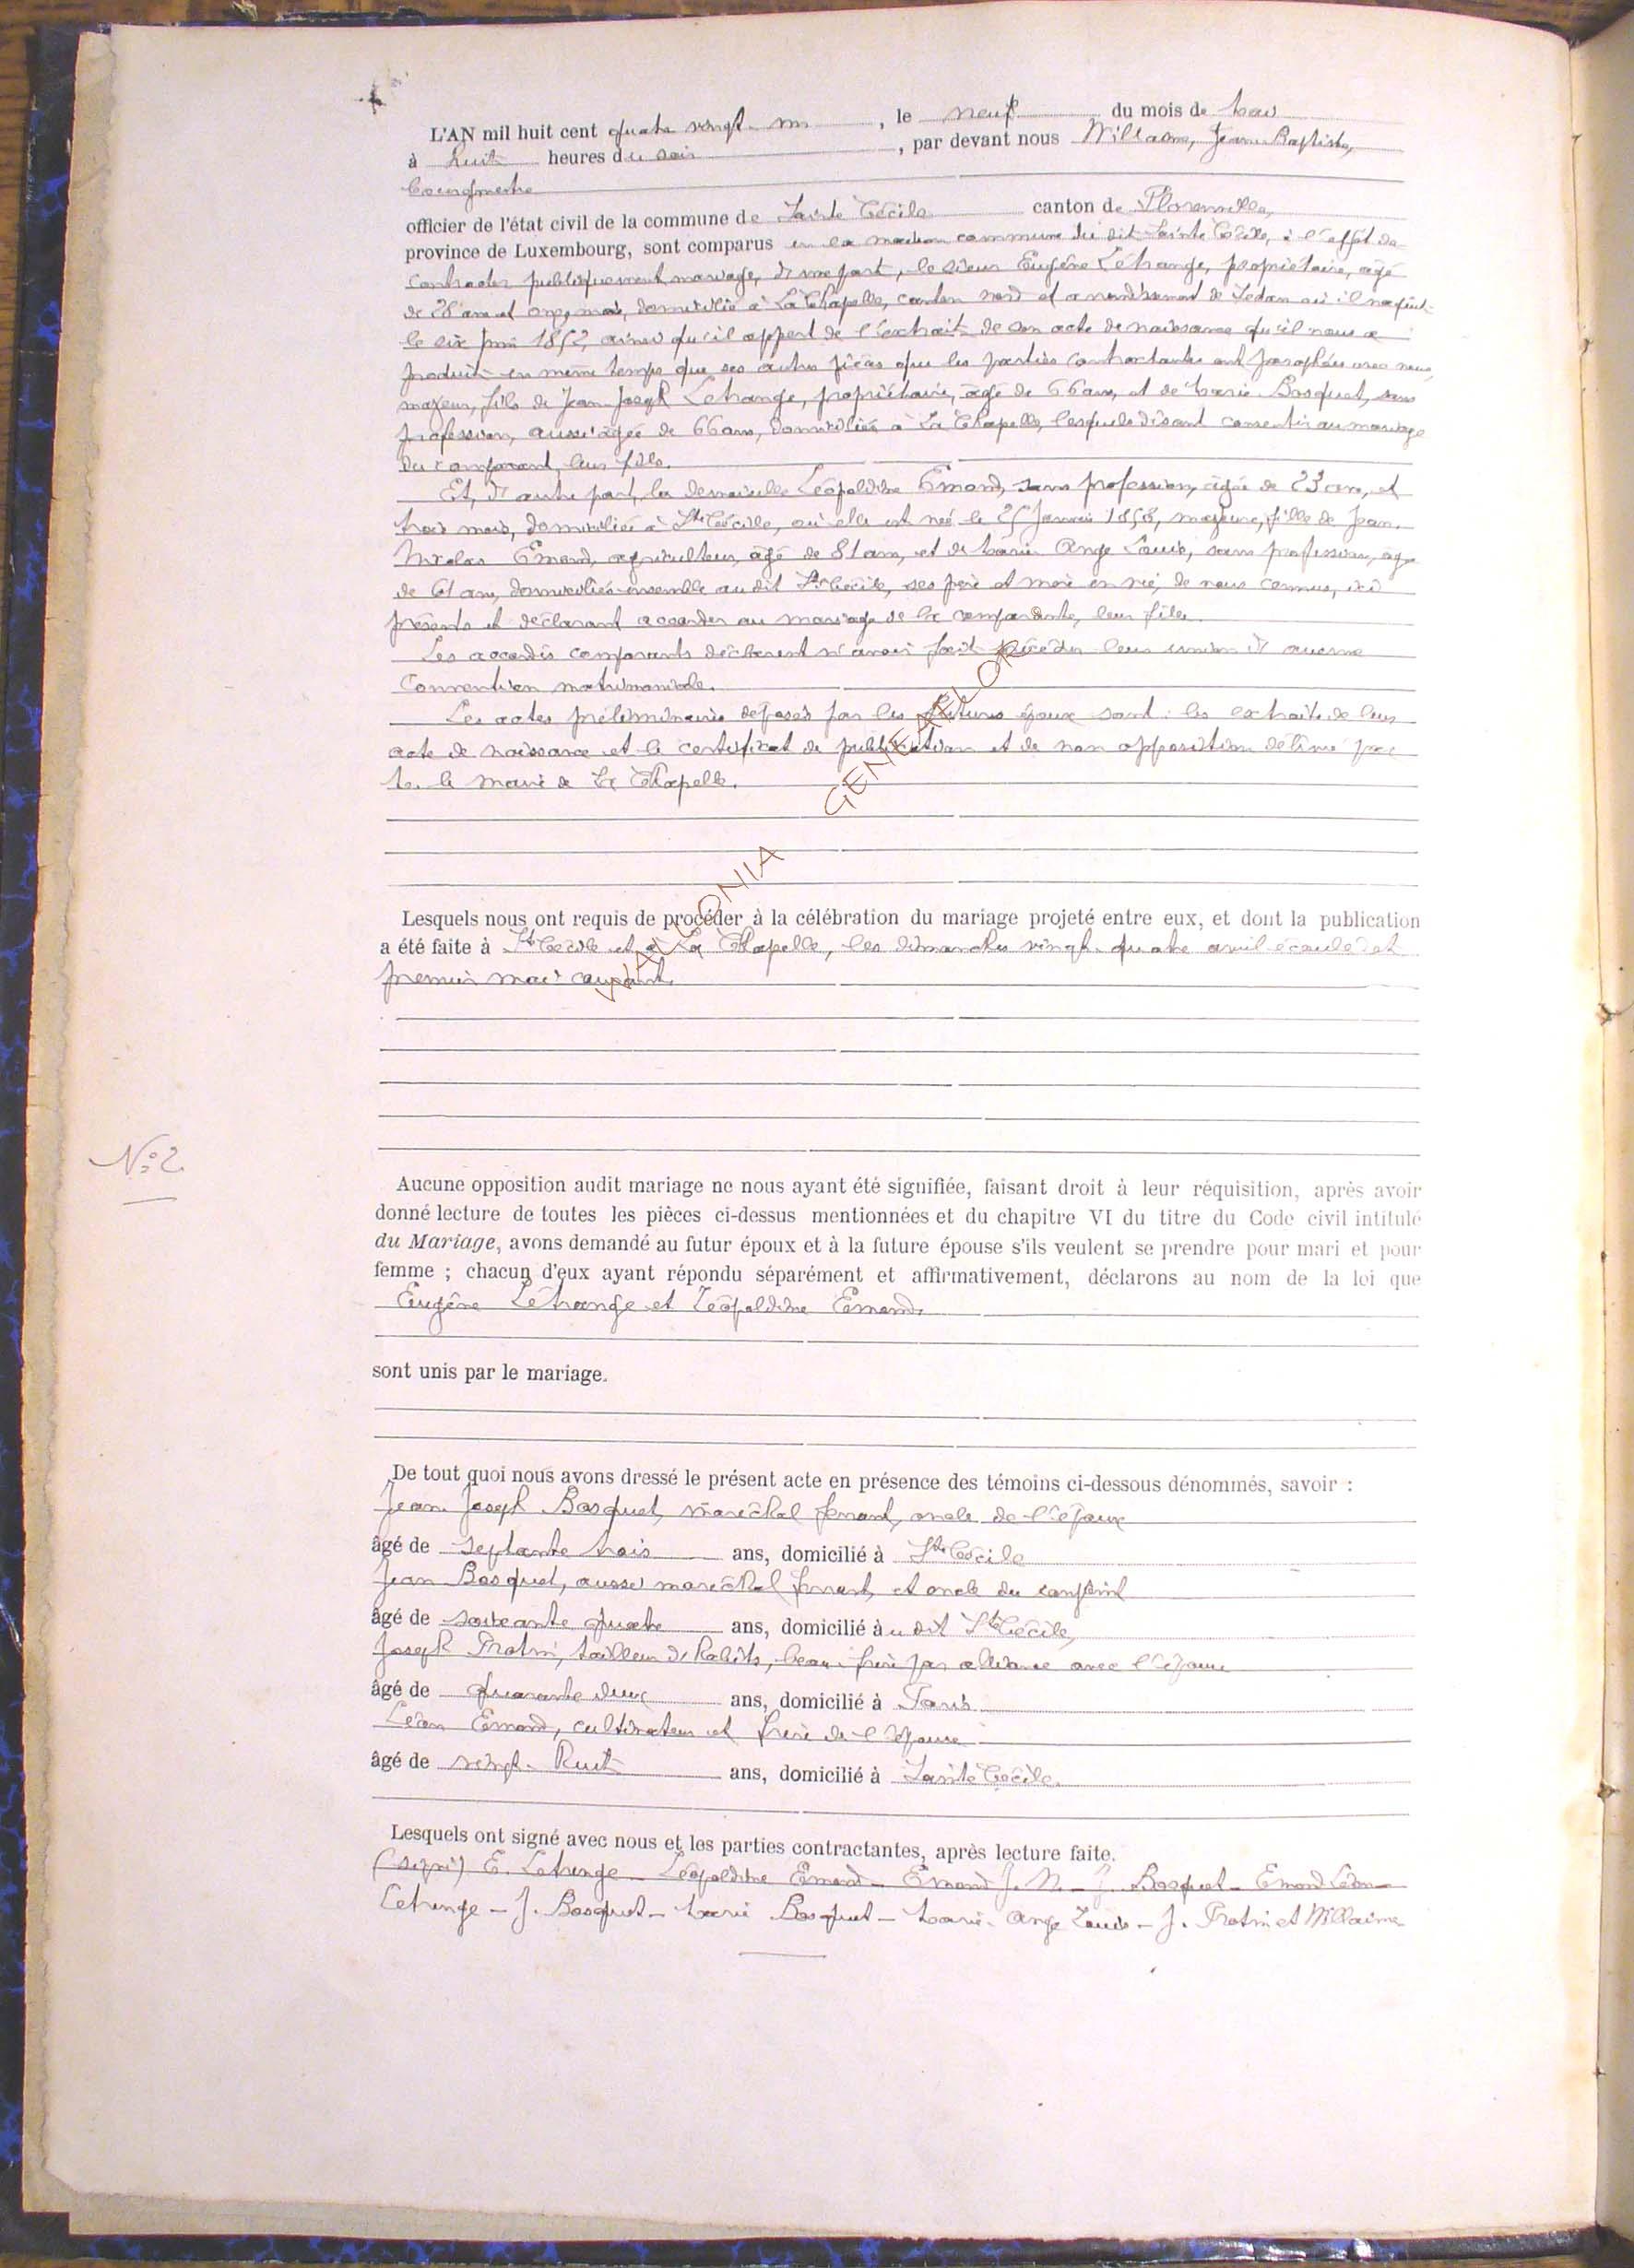 L'AN mil huit cent quatre vingt-un, le neuf du mois de Mai
à huit heures du soir, par devant nous Willaime, Jean-Baptiste,
Bourgmestre
officier de l'état civil de la commune de Sainte Cécile canton de Florenville,
province de Luxembourg, sont comparus en la maison commune du dit Sainte Cécile, à l'effet de
contracter publiquement mariage, d'une part, le sieur Eugène Létrange, propriétaire, âgé
de 28 ans et onze mois, domicilié à La Chapelle, canton nord et arrondissement de Sedan où il naquit
le six juin 1852, ainsi qu'il appert de l'extrait de son acte de naissance qu'il nous a
produit en même temps que ses autres pièces que les parties contractantes ont paraphées avec nous,
majeur, fils de Jean-Joseph Letrange, propriétaire, âgé de 66 ans, et de Marie Bosquet, sans
profession, aussi âgée de 66 ans, domiciliés à La Chapelle, lesquels disant consentir au mariage
du comparant, leur fils.
Et, d'autre part, la demoiselle Léopoldine Emond, sans profession, âgée de 23 ans, et
trois mois, domiciliée à Ste Cécile, où elle est née le 25 Janvier 1858, majeure, fille de Jean-
Nicolas Emond, agriculteur, âgé de 81 ans, et de Marie Ange Louis, sans profession, âgée
de 61 ans, domiciliés ensemble au dit Ste Cécile, ses père et mère en vie, de nous connus, ici
présents et déclarant accorder au mariage de la comparante, leur fille.
Les accordés comparants déclarent n'avoir fait précéder leur union d'aucune
convention matrimoniale.
Les actes préliminaires déposés par les futurs époux sont: les extraits de leur
acte de naissance et le certificat de publication et de non opposition délivré par
M. le maire de La Chapelle.
WALLONIA GENEALOR
Lesquels nous ont requis de procéder à la célébration du mariage projeté entre eux, et dont la publication
a été faite à Ste Cécile et à La Chapelle, les dimanches vingt-quatre avril écoulé et
premier mai courant.
N° 2
Aucune opposition audit mariage ne nous ayant été signifiée, faisant droit à leur réquisition, après avoir
donné lecture de toutes les pièces ci-dessus mentionnées et du chapitre VI du titre du Code civil intitulé
du Mariage, avons demandé au futur époux et à la future épouse s'ils veulent se prendre pour mari et pour
femme ; chacun d'eux ayant répondu séparément et affirmativement, déclarons au nom de la loi que
Eugène Létrange et Léopoldine Emond
sont unis par le mariage.
De tout quoi nous avons dressé le présent acte en présence des témoins ci-dessous dénommés, savoir :
Jean-Joseph Bosquet, maréchal ferrant, oncle de l'époux
âgé de septante trois ans, domicilié à Ste Cécile
Jean Bosquet, aussi maréchal ferrant, et oncle du conjoint
âgé de soixante quatre ans, domicilié au dit Ste Cécile,
Joseph Protin, tailleur d'habits, beau-frère par alliance avec l'époux
âgé de quarante deux ans, domicilié à Paris
Léon Emond, cultivateur et frère de l'épouse
âgé de vingt-huit ans, domicilié à Sainte Cécile.
Lesquels ont signé avec nous et les parties contractantes, après lecture faite.
(signé) E. Letrange - Léopoldine Emond - Emond J. N. - J. Bosquet - Emond Léon -
Letrange - J. Bosquet - Marie Bosquet - Marie-Ange Louis - J. Protin et Willaime